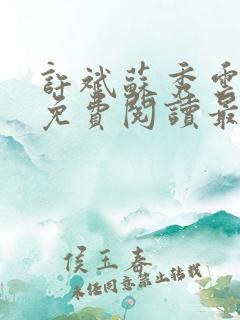 許斌蘇秀雲
免費閱讀最
侯玉春
未經同意禁止轉載